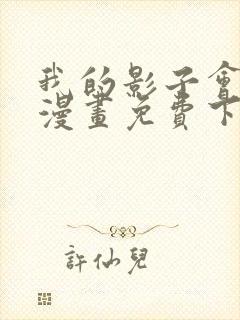 我的影子會
漫畫免費下
許仙兒